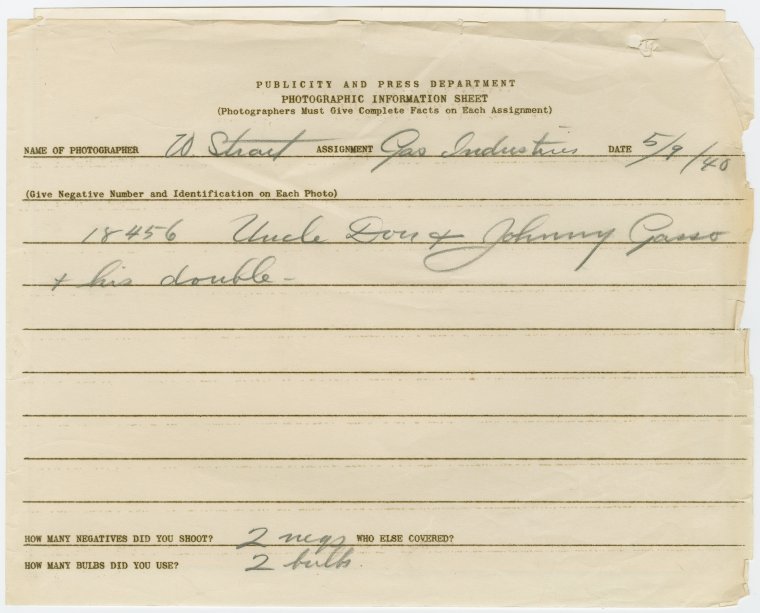 PUBLICITY AND PRESS DEPARTMENT
PHOTOGRAPHIC INFORMATION SHEET
(Photographers Must Give Complete Facts on Each Assignment)
NAME OF PHOTOGRAPHER W. Strait ASSIGNMENT Gas Industries DATE 5/9/40
(Give Negative Number and Identification on Each Photo)
18456 Uncle Don & Johnny Gasso
& his double -
HOW MANY NEGATIVES DID YOU SHOOT? 2 negs WHO ELSE COVERED?
HOW MANY BULBS DID YOU USE? 2 bulbs.